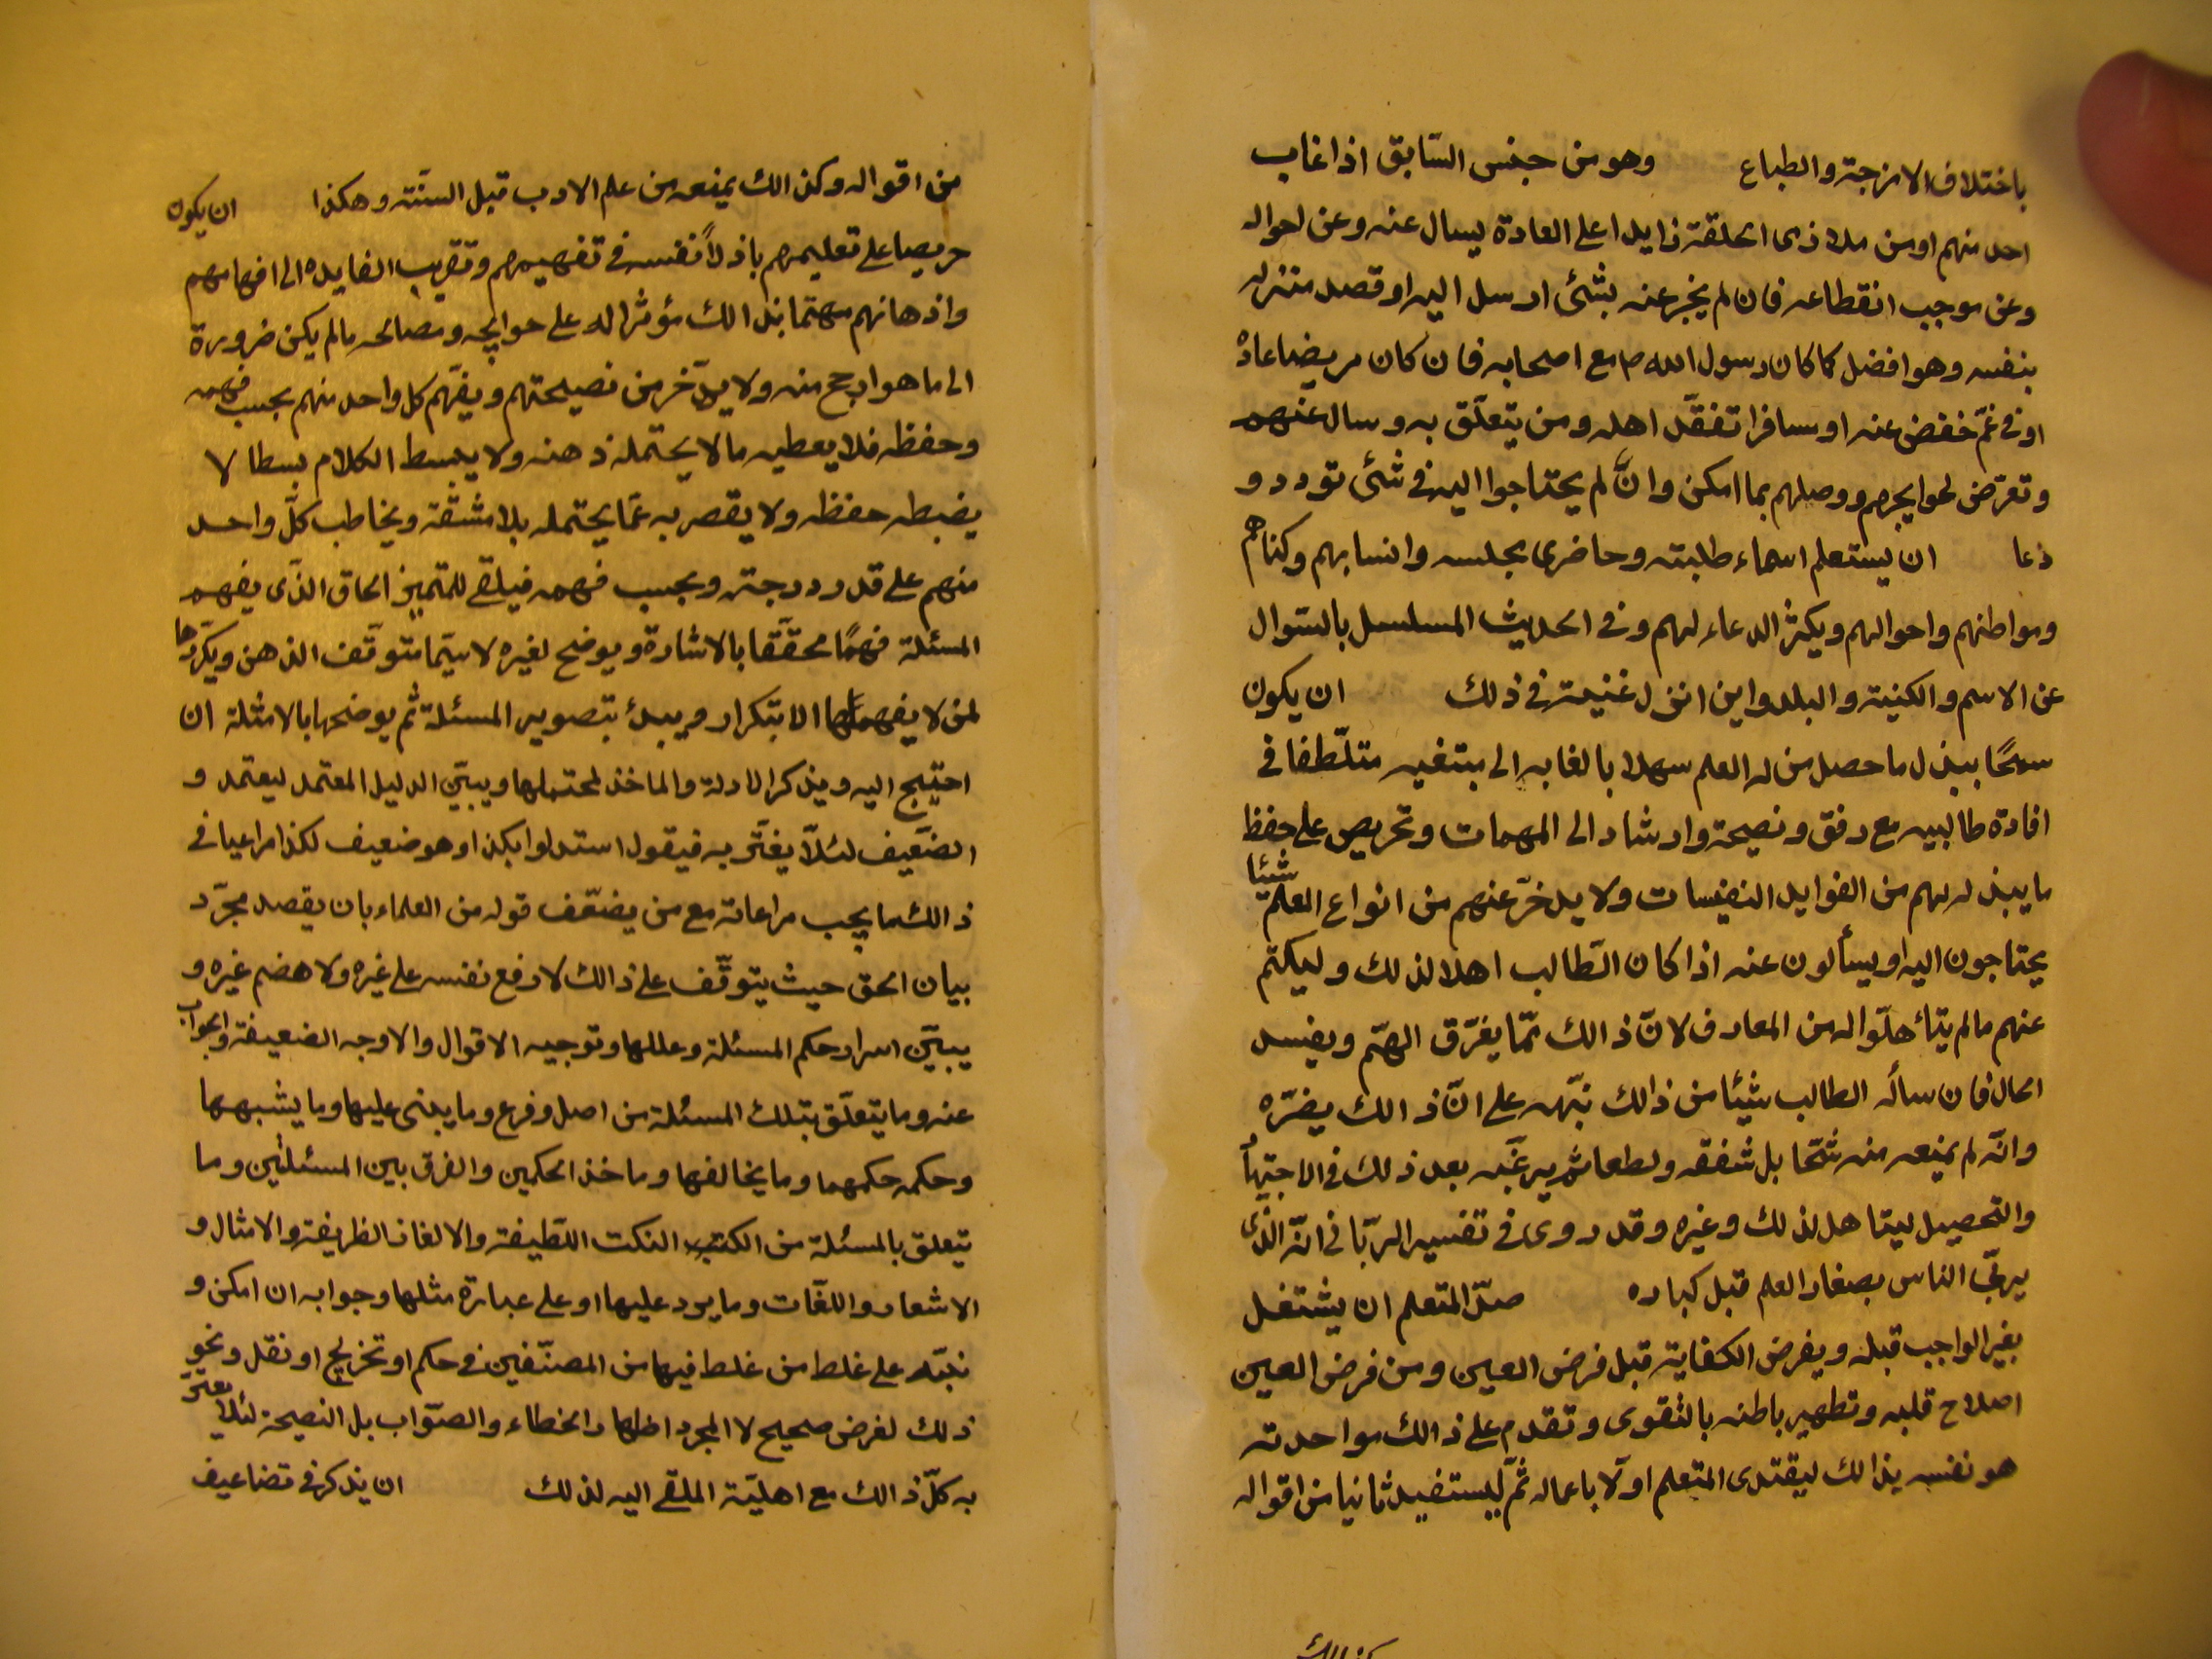 باختلاف الامزجة والطباع وهو من جنس السّابق اذا غاب
احد منهم او من ملا ذى الحلقة زايدا على العادة يسال عنه وعن احواله
وعن موجب انقطاعه فان لم يخبر عنه بشئ ارسل اليه او قصد منزله
بنفسه وهو افضل كما كان رسول الله ص مع اصحابه فان كان مريضا عاده
او فى غمّ خفض عنه او مسافرا تفقّد اهله ومن يتعلّق به وسال عنهم
وتعرّض لحوايجهم ووصلهم بما امكن وانّ لم يحتاجوا اليه فى شئ تودد و
دعا ان يستعلم اسماء طلبته وحاضرى مجلسه وانسابهم وكناهم
ومواطنهم واحوالهم ويكثر الدعاء لهم وفى الحديث المسلسل بالسّوال
عن الاسم والكنية والبلد واين انزل غنيمة فى ذلك ان يكون
سمحًا ببذل ما حصل من له العلم سهلا بالغا به الى مبتغيه متلّطفا فى
افادة طالبيه مع رفق ونصيحة وارشاد الى المهمات وتحريص على حفظ
ما يبذله لهم من الفوايد النفيسات ولا يدخرّ عنهم من انواع العلم شيئا
يحتاجون اليه او يسألون عنه اذا كان الطّالب اهلا لذلك وليكتم
عنهم مالم يتأهلّوا له من المعارف لانّ ذالك ممّا يفرّق الهمّ ويفسد
الحال فان ساله الطالب شيئا من ذالك نبّهه على انّ ذالك يضرّه
وانّه لم يمنعه منه شحّا بل شفقه ولطفا ثم يرغّبه بعد ذلك فى الاجتهاد
والتحصيل ليتاهل لذلك وغيره وقد روى فى تفسير الربّانى انّه الذى
يربّى الناس بصغار العلم قبل كباره صدّ المتعلم ان يشتغل
بغير الواجب قبله وبفرض الكفاية قبل فرض العين ومن فرض العين
اصلاح قلبه وتطهير باطنه بالتقوى وتقدم على ذالك مواخدته
هو نفسه بذالك ليقتدى المتعلم اولّا باعماله ثمّ ليستفيد ثانيا من اقواله
من اقواله وكذالك يمنعه من علم الادب قبل السنّة وهكذا ان يكون
حريصا على تعليمهم باذلاً نفسه فى تفهيمهم وتقريب الفايده الى افهامهم
واذهانهم مهتما بذالك مؤثرا له على حوايجه ومصالحه مالم يكن ضرورة
الى ما هو ارجح منه ولا يدّخر من نصيحتهم ويفهّم كل واحد منهم بحسب فهمه
وحفظه فلا يعطيه ما لا يحتمله ذهنه ولا يبسط الكلام بسطا لا
يضبطه حفظه ولا يقصر به عمّا يحتمله بلا مشقّة ويخاطب كلّ واحد
منهم على قدر درجته وبحسب فهمه فيلقى للمتميز الحاق الذّى يفهم
المسئلة فهمًا محققّا بالاشارة ويوضح لغيره لاسيّما متوقّف الذهن ويكرّرها
لمن لا يفهمها الا بتكرار ويبدئ بتصوير المسئلة ثم يوضحها بالامثلة ان
احتيج اليه ويذكر الادلة والماخذ لمحتملها ويبيّن الدليل المعتمد ليعتمد و
الضعّيف لئلّا يغتّر به فيقول استدلوا بكذا وهو ضعيف لكذا مراعيا فى
ذالك ما يجب مراعاته مع من يضعّف قوله من العلماء بان يقصد مجرّد
بيان الحق حيث يتوقّف على ذالك لا رفع نفسه على غيره ولا هضم غيره و
يبيّن اسرار حكم المسئلة وعللها وتوجيه الاقوال والاوجه الضعيفة والجواب
عنه وما يتعلّق بتلك المسئلة من اصل وفرع وما يبنى عليها وما يشبهها
وحكمه حكمهما وما يخالفها وماخذ الحكمين والفرق بين المسئلتين وما
يتعلق بالمسئلة من النكت اللّطيفة والالغاز الظريفة والامثال و
الاشعار واللغّات وما يرد عليها او على عبارة مثلها وجوابه ان امكن و
نبّه على غلط من غلط فيها من المصنّفين فى حكم او تخريج او نقل ونحو
ذلك لغرض صحيح لا لمجرد اظهار الخطاء والصّواب بل النصيحة لئلا يغترّ
به كلّ ذالك مع اهليّة الملقّى اليه لذلك ان يذكر فى تضاعيف